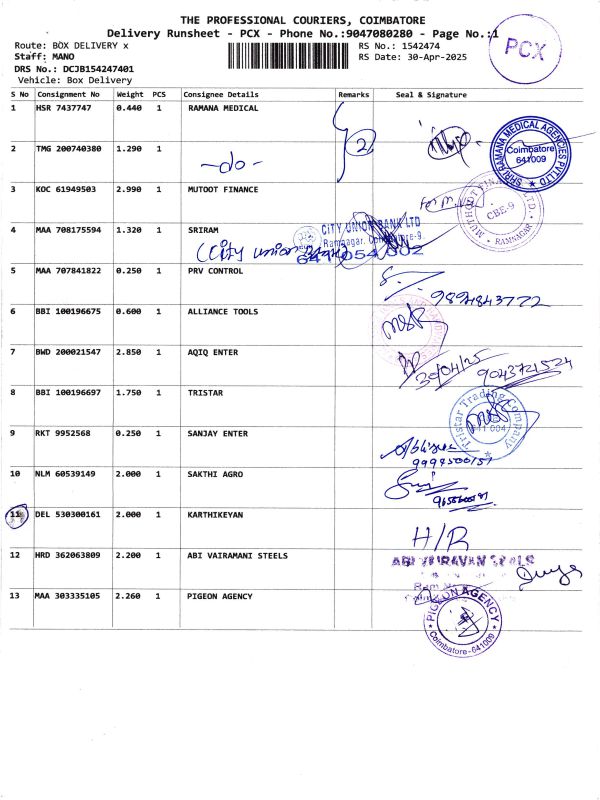 THE PROFESSIONAL COURIERS, COIMBATORE
Delivery Runsheet - PCX - Phone No.:9047080280 - Page No.:1
Route: BOX DELIVERY x
RS No.: 1542474
Staff: MANO
RS Date: 30-Apr-2025
DRS No.: DCJB154247401
Vehicle: Box Delivery
PCX
S No Consignment No Weight PCS Consignee Details Remarks Seal & Signature
1 HSR 7437747 0.440 1 RAMANA MEDICAL
2
SRI RAMANA MEDICAL AGENCIES PVT LTD
Coimbatore
641009
2 TMG 200740380 1.290 1
-do-
3 KOC 61949503 2.990 1 MUTOOT FINANCE
MUTHOOT FINANCE LTD.
CBE-9
RAMNAGAR
4 MAA 708175594 1.320 1 SRIRAM
(City union Bank)
CITY UNION BANK LTD
Ramnagar, Coimbatore-9.
641054002
5 MAA 707841822 0.250 1 PRV CONTROL
9894843772
6 BBI 100196675 0.600 1 ALLIANCE TOOLS
7 BWD 200021547 2.850 1 AQIQ ENTER
30/04/25
9043721524
8 BBI 100196697 1.750 1 TRISTAR
Tristar Trading Company
9 RKT 9952568 0.250 1 SANJAY ENTER
9994500151
10 NLM 60539149 2.000 1 SAKTHI AGRO
11 DEL 530300161 2.000 1 KARTHIKEYAN
H/R
12 HRD 362063809 2.200 1 ABI VAIRAMANI STEELS
13 MAA 303335105 2.260 1 PIGEON AGENCY
PIGEON AGENCY
Coimbatore-641009